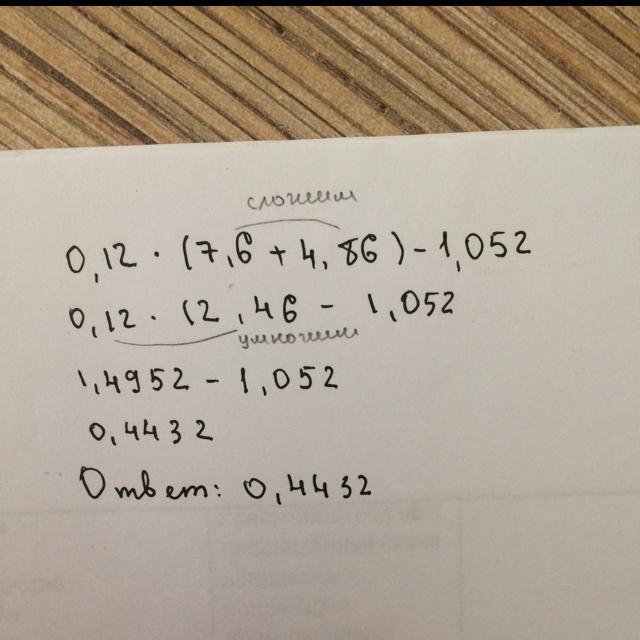 сложим
0,12 · (7,6 + 4,86) - 1,052
0,12 · 12,46 - 1,052
умножим
1,4952 - 1,052
0,4432
Ответ: 0,4432